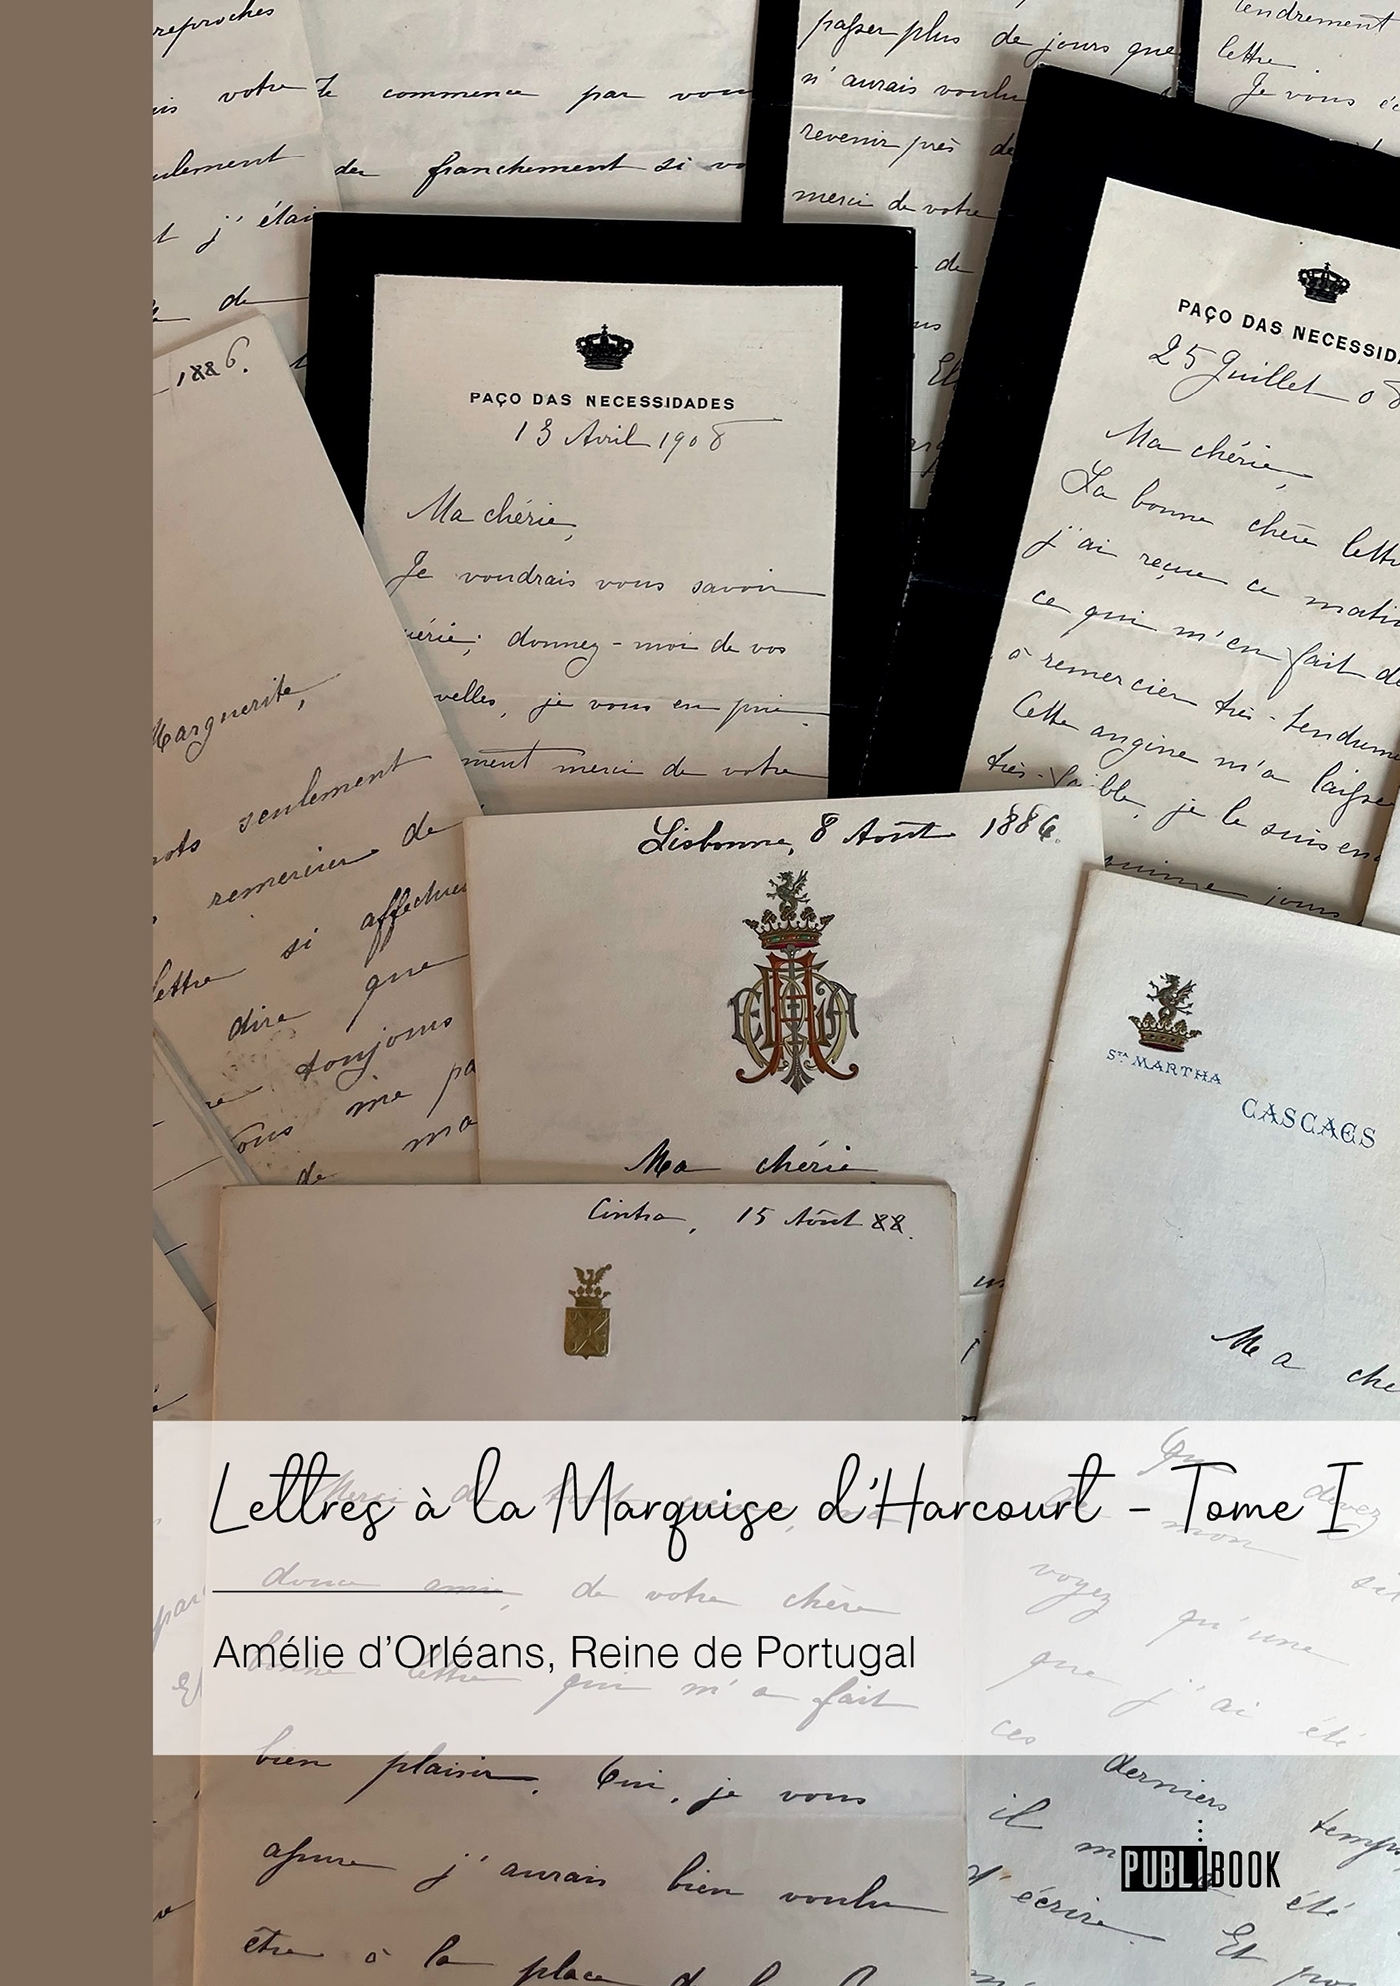 reproches
votre
ulement
t j'étais
de
te commence par vous
der franchement si vo
passer plus de jours que
n'aurais voulu
revenir près de
merci de votre
de
tendrement
lettre.
Je vous
1886.
Marguerite,
mots seulement
remercier de
lettre si affectueu
dire que
toujours
vous me pa
de ma
PAÇO DAS NECESSIDADES
13 Avril 1908
Ma chérie,
Je voudrais vous savoir
guérie; donnez-moi de vos
velles, je vous en prie.
ment merci de votre
PAÇO DAS NECESSIDA
25 Juillet 08
Ma chérie,
La bonne chère lettre
j'ai reçue ce matin
ce qui m'en fait de
à remercier très-tendrem
Cette angine m'a laissé
très-faible, je le suis en
quinze jours
Lisbonne, 8 Août 1886.
Ma chérie
STA MARTHA
CASCAES
Ma ché
Cintra, 15 Août 88.
Lettres à la Marquise d'Harcourt - Tome I
Merci de
devez
mon
douce amie, de votre chère
voyez qu'une
Amélie d'Orléans, Reine de Portugal
bonne lettre qui m'a fait
que j'ai été
ces derniers temps
bien plaisir. Oui, je vous
il m'a été
assure j'aurais bien voulu
d'écrire. Et pour
être à la place de la
PUBLIBOOK